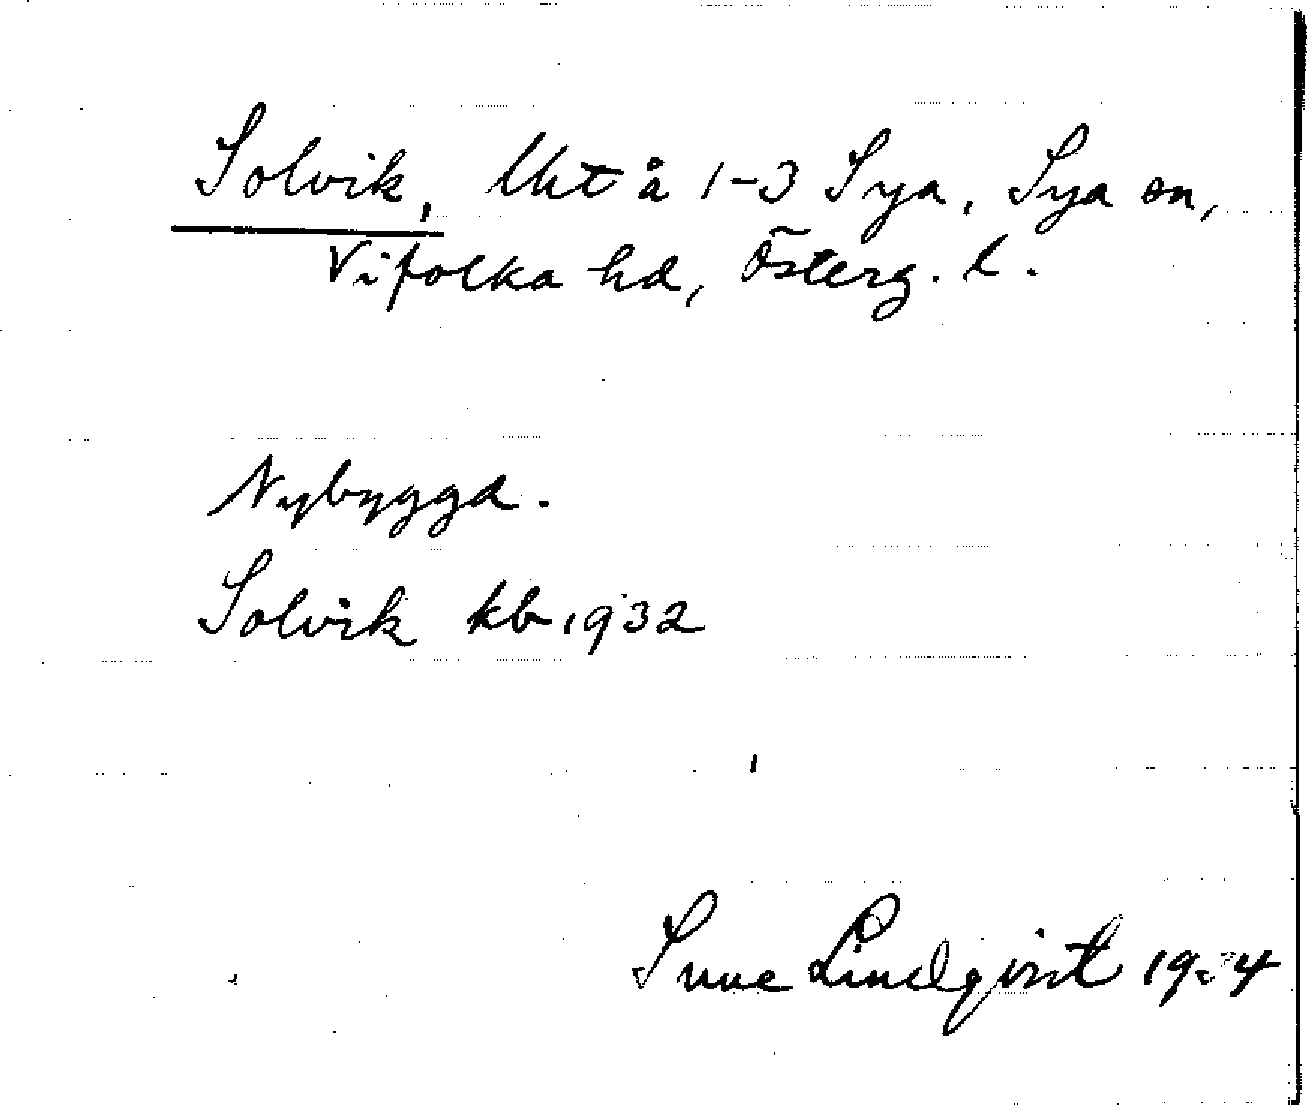 Solvik, Uht å 1-3 Sya, Sya sn,
Vifolka hd, Österg. l.
Nybyggd.
Solvik kb 1932
Sune Lindqvist 1934